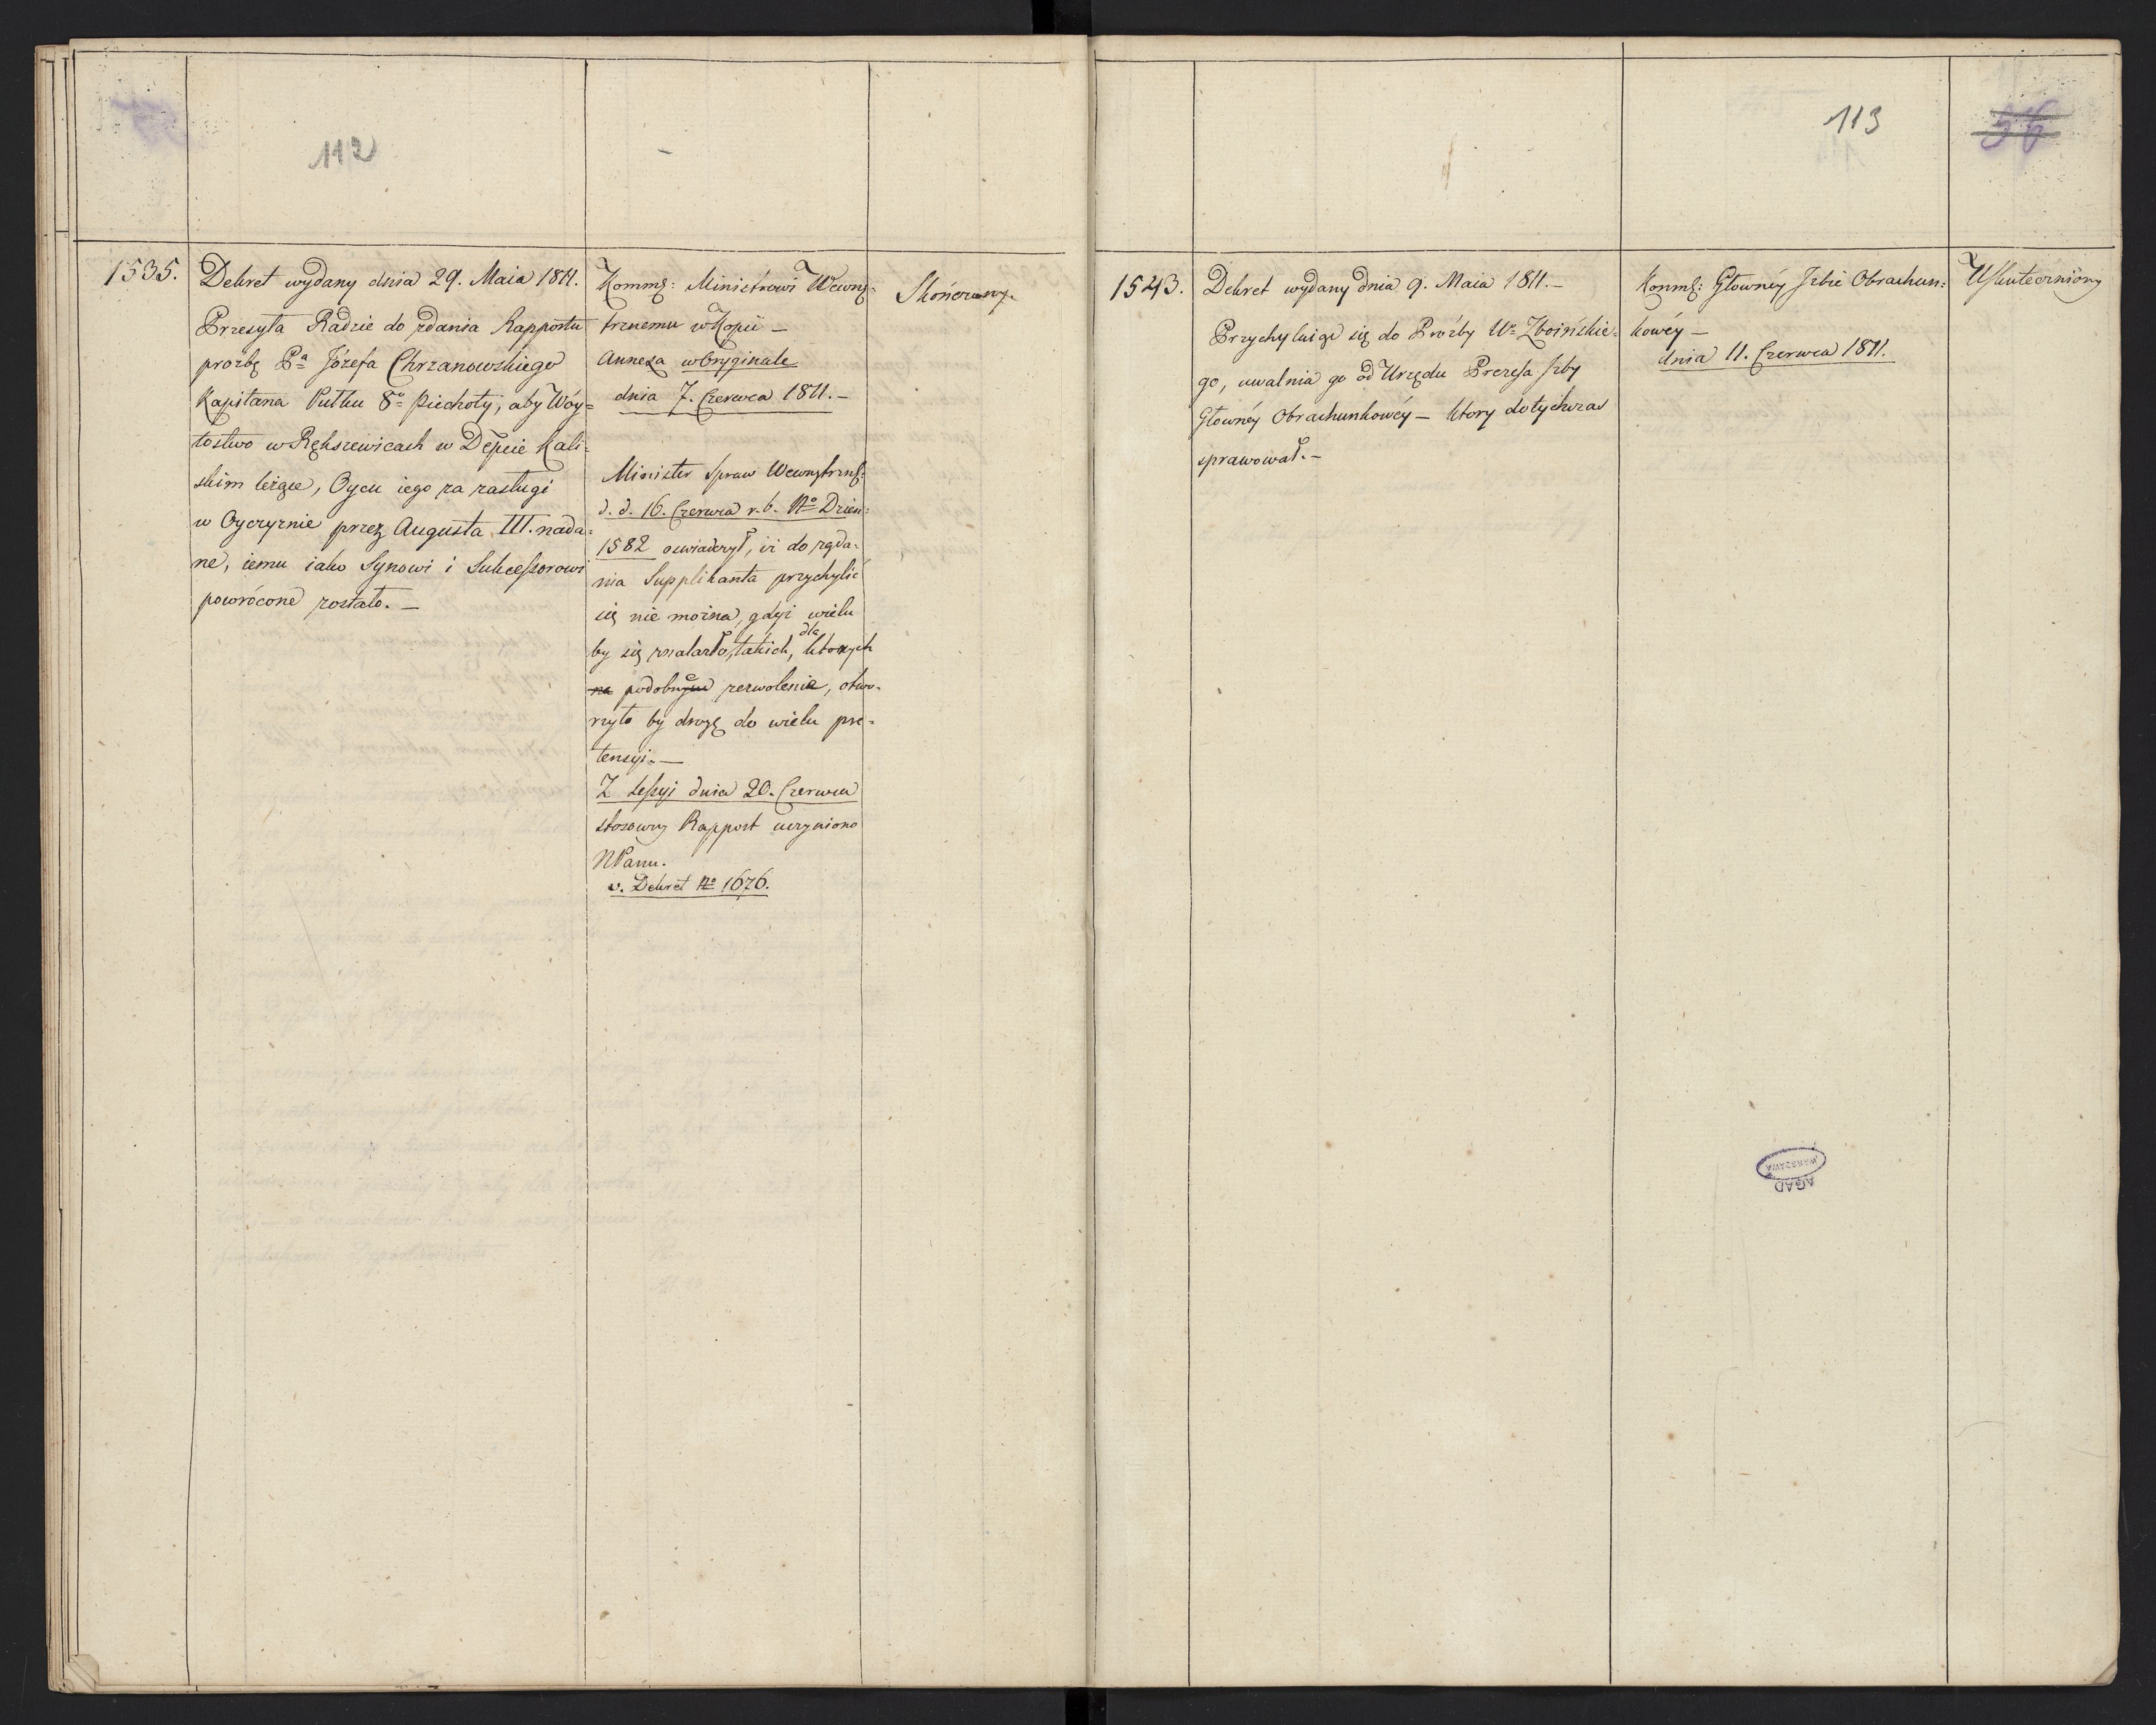 112
1535.
Dekret wydany dnia 29. Maia 1811.
Przesyła Radzie do zdania Rapportu
prożbę Pa Józefa Chrzanowskiego
Kapitana Pułku 8o Piechoty, aby Wóy=
tostwo w Rększewicach w Depcie Kali=
skim leżące, Oycu iego za zasługi
w Oyczyznie przez Augusta III. nada=
ne, iemu iako Synowi i Sukcessorowi
powrócone zostało. —
Kommę: Ministrowi Wewnę=
trznemu w Kopii —
Annexa w Oryginale
dnia 7. Czerwca 1811. —
Minister Spraw Wewnętrznę:
d. d. 16. Czerwca r. b. No Dzien:
1582 oswiadczył, iż do żąda=
nia Supplikanta przychylić
się nie można, gdyż wielu
by się znalazło, takich, dla ktorych
na podobne zezwolenie, otwo=
rzyło by drogę do wielu pre=
tensyi. —
Z Sessyi dnia 20. Czerwca
stosowny Rapport uczyniono
NPanu.
v. Dekret No 1676.
Skończony.
113
56
1543.
Dekret wydany dnia 9. Maia 1811. —
Przychylaiąc się do Prożby Wo Zboińskie=
go, uwalnia go od Urzędu Prezesa Izby
Głownéy Obrachunkowéy — ktory dotychczas
sprawował. —
Kommę: Głownéy Izbie Obrachun=
kowéy —
dnia 11. Czerwca 1811.
Uskuteczniony
WARSZAWA
AGAD